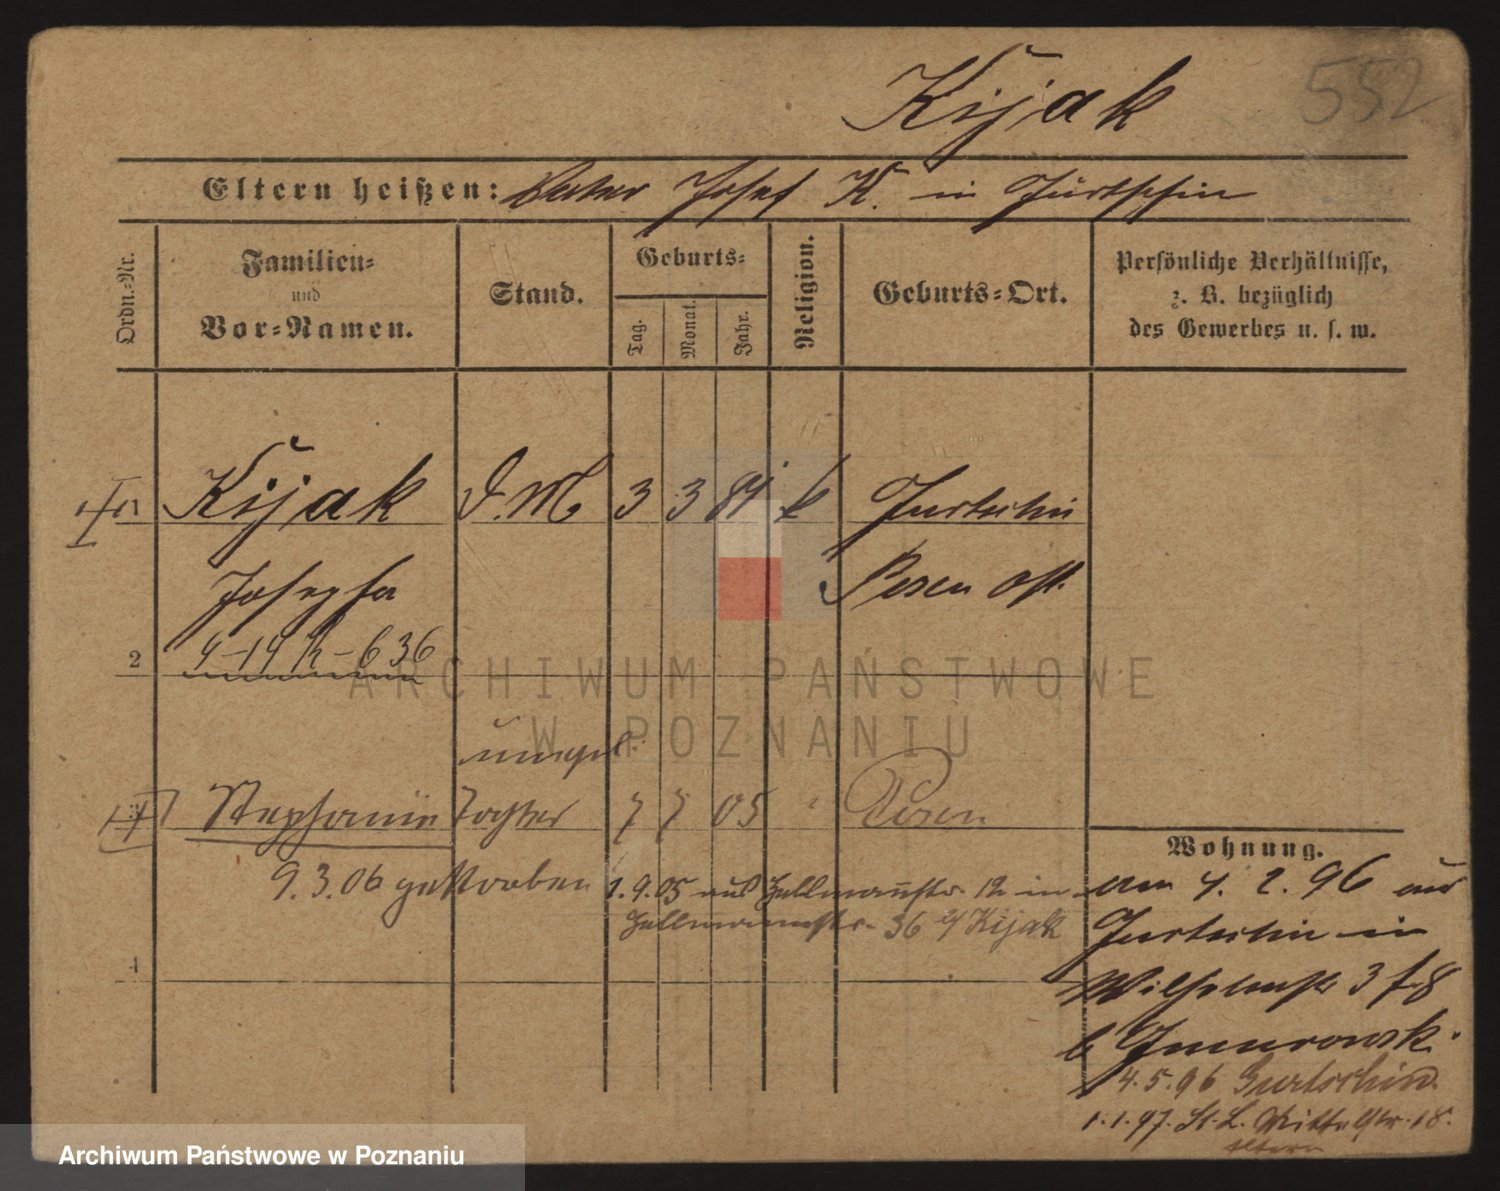 Kijak
552
Eltern heißen: Vater Josef K. in Jurtschin
Ordn.-Nr.
Familien-
und
Vor-Namen.
Stand.
Geburts-
Tag.
Monat.
Jahr.
Religion.
Geburts-Ort.
Persönliche Verhältnisse,
z. B. bezüglich
des Gewerbes u. s. w.
Kijak
D.M
3 3 84 k
Jurtschin
Josepha
Posen Ost.
2
4-14 K-636
unehel.
Stephanie Tochter 7 7 05 Posen
9.3.06 gestorben
1.9.05 aus Hallmannstr. 12 in
Hallmannstr. 36 Kijak
4
Wohnung.
am 4. 2. 96 aus
Jurtschin in
Wilhelmstr 3
b
4.5.96 Gurtschin.
1.1.97. St. L. 18.
Eltern
ARCHIWUM PAŃSTWOWE
W POZNANIU
Archiwum Państwowe w Poznaniu